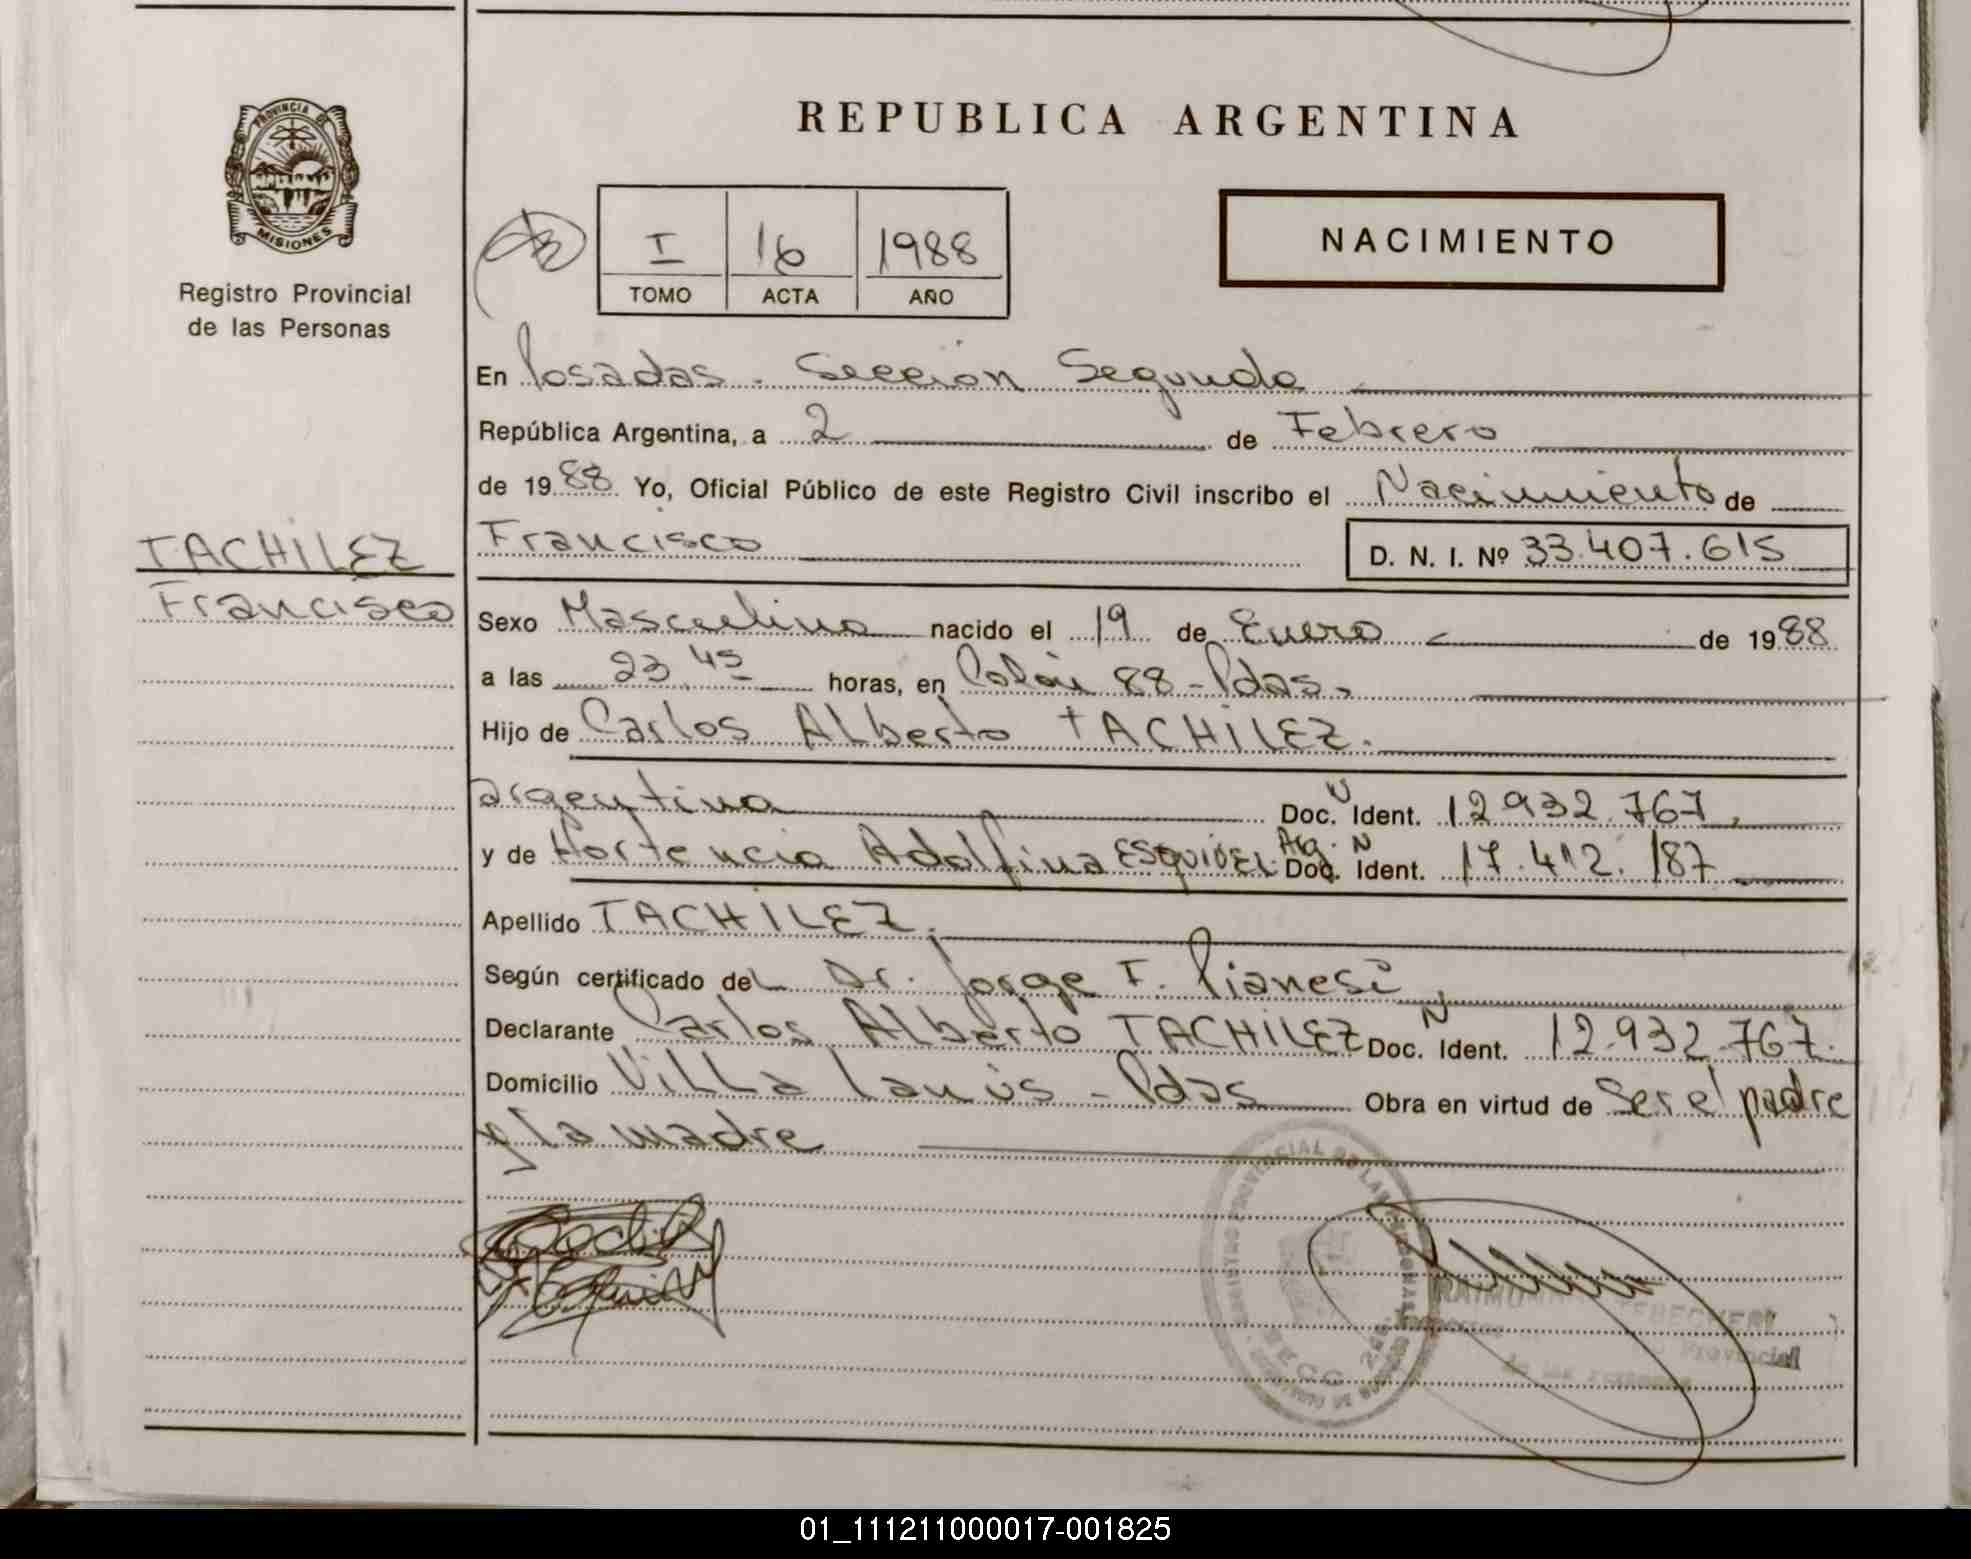 PROVINCIA DE
MISIONES
Registro Provincial
de las Personas
REPUBLICA ARGENTINA
I 16 1988
TOMO ACTA AÑO
NACIMIENTO
En Posadas. Sección Segunda
República Argentina, a 2 de Febrero
de 1988 Yo, Oficial Público de este Registro Civil inscribo el Nacimiento de
TACHILEZ
Francisco
Francisco D. N. I. Nº 33.407.615
Sexo Masculino nacido el 19 de Enero de 1988
a las 23 45 horas, en Colón 88 - Pdas.
Hijo de Carlos Alberto TACHILEZ.
argentina Doc. N Ident. 12.932.767,
y de Hortencia Adolfina ESQUIVEL. Arg. N Doc. Ident. 17.412.187
Apellido TACHILEZ.
Según certificado del Dr. Jorge F. Pianesi
Declarante Carlos Alberto TACHILEZ Doc. N Ident. 12.932.767.
Domicilio Villa Lanús - Pdas Obra en virtud de Ser el padre
y la madre
REGISTRO PROVINCIAL DE LAS PERSONAS
SECC. 2da.
Provincial
de las Personas
01_111211000017-001825